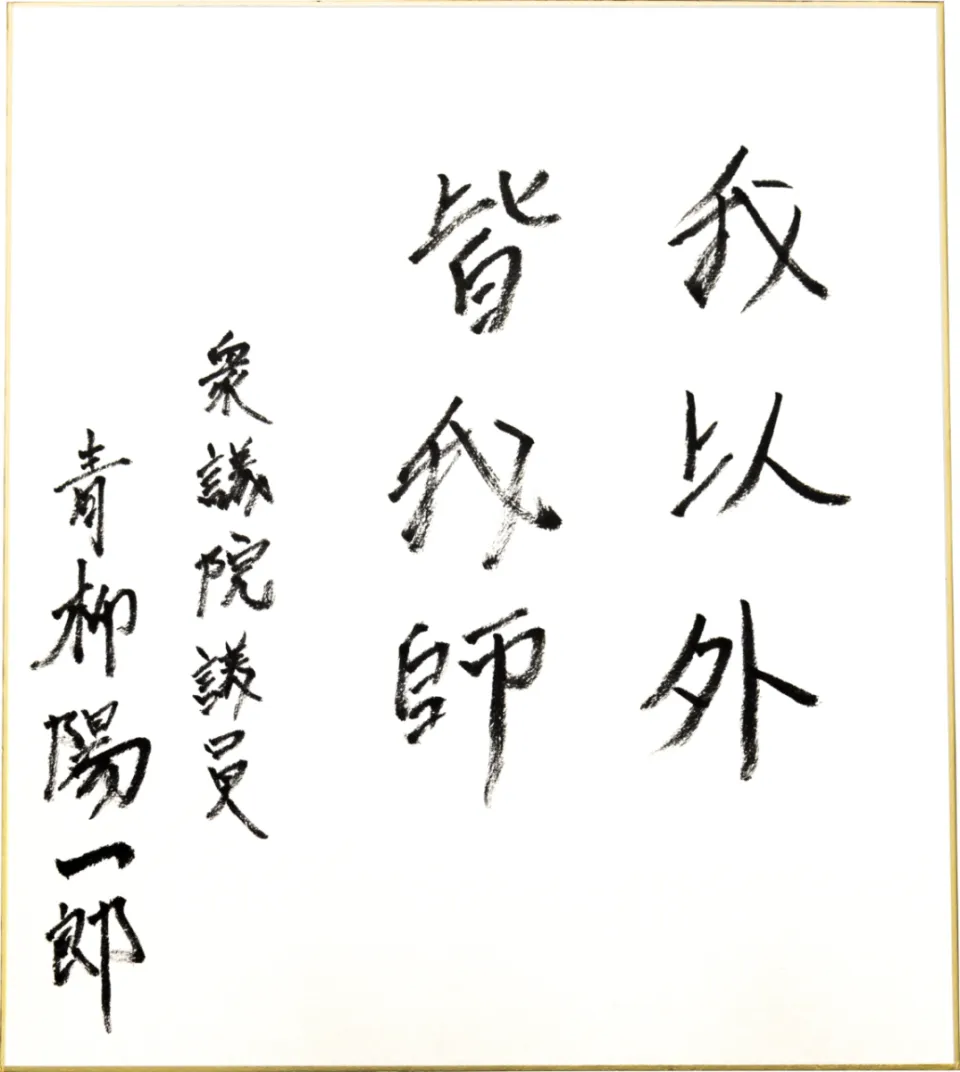 我以外
皆我師
衆議院議員
青柳陽一郎